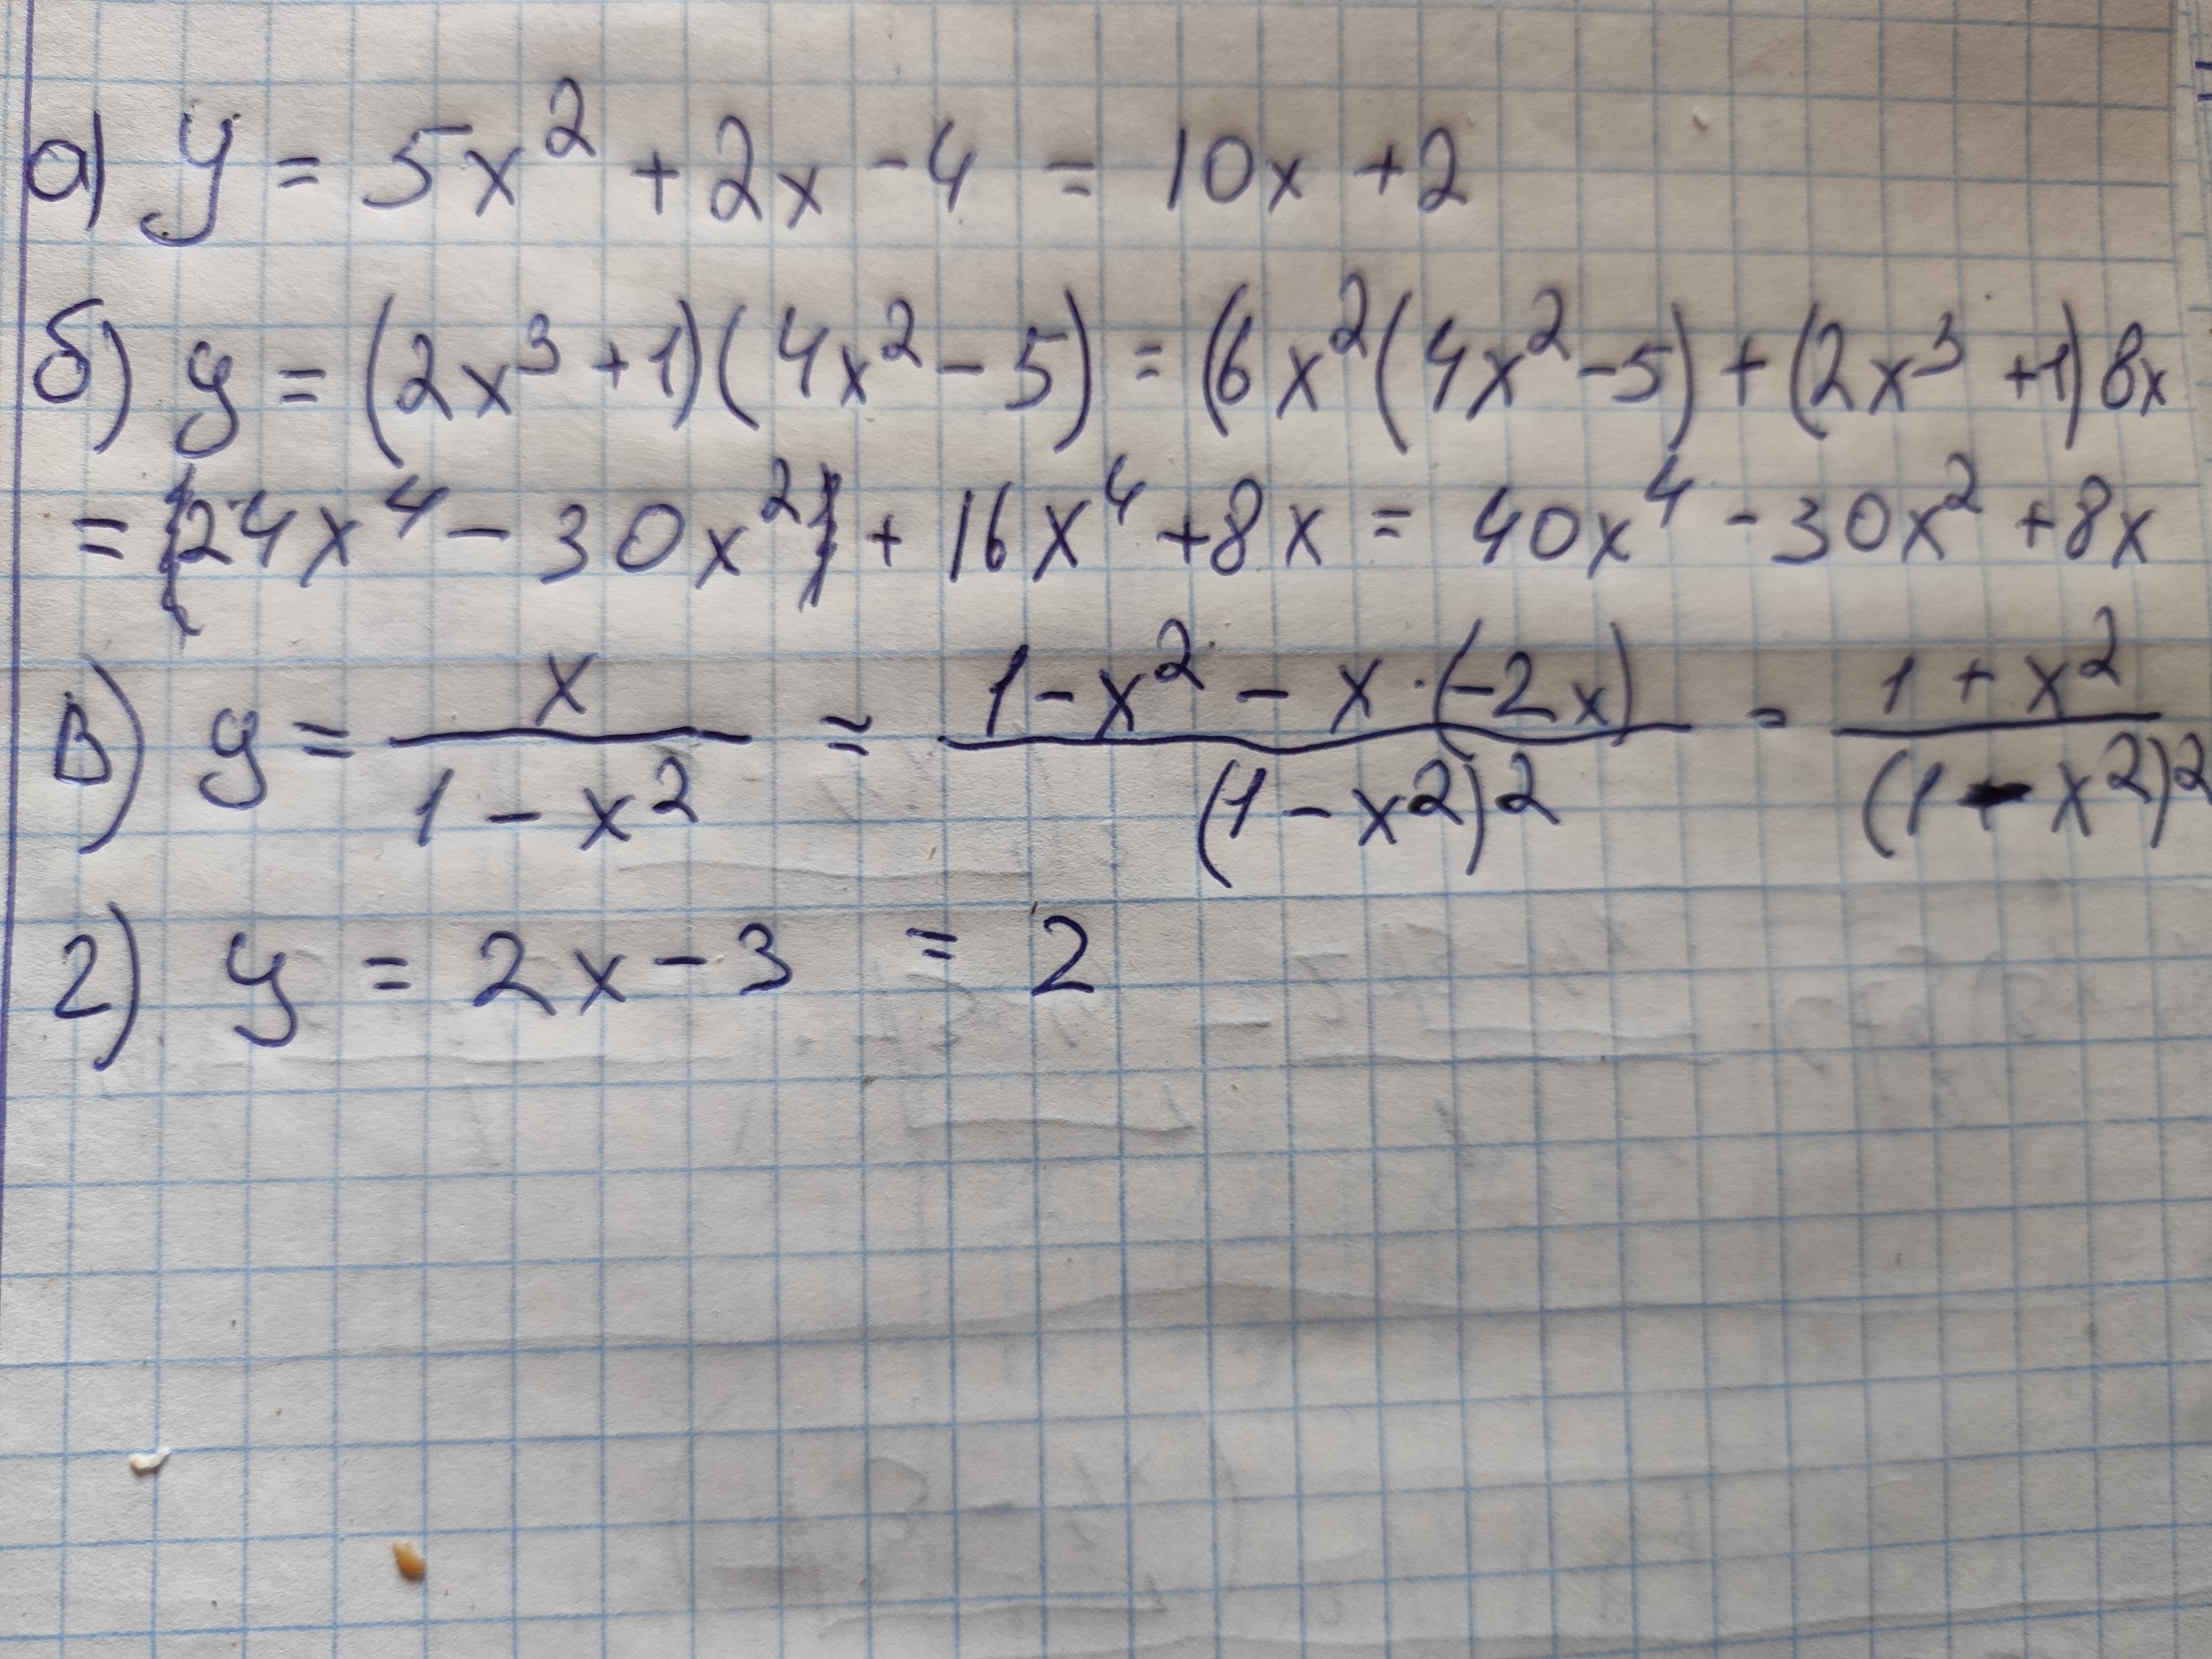 а) y = 5x² + 2x - 4 = 10x + 2
б) y = (2x³ + 1)(4x² - 5) = (6x²(4x² - 5) + (2x³ + 1) 8x
= {24x⁴ - 30x²} + 16x⁴ + 8x = 40x⁴ - 30x² + 8x
в) y = x / (1 - x²) = (1 - x² - x · (-2x)) / (1 - x²)² = (1 + x²) / (1 - x²)²
г) y = 2x - 3 = 2